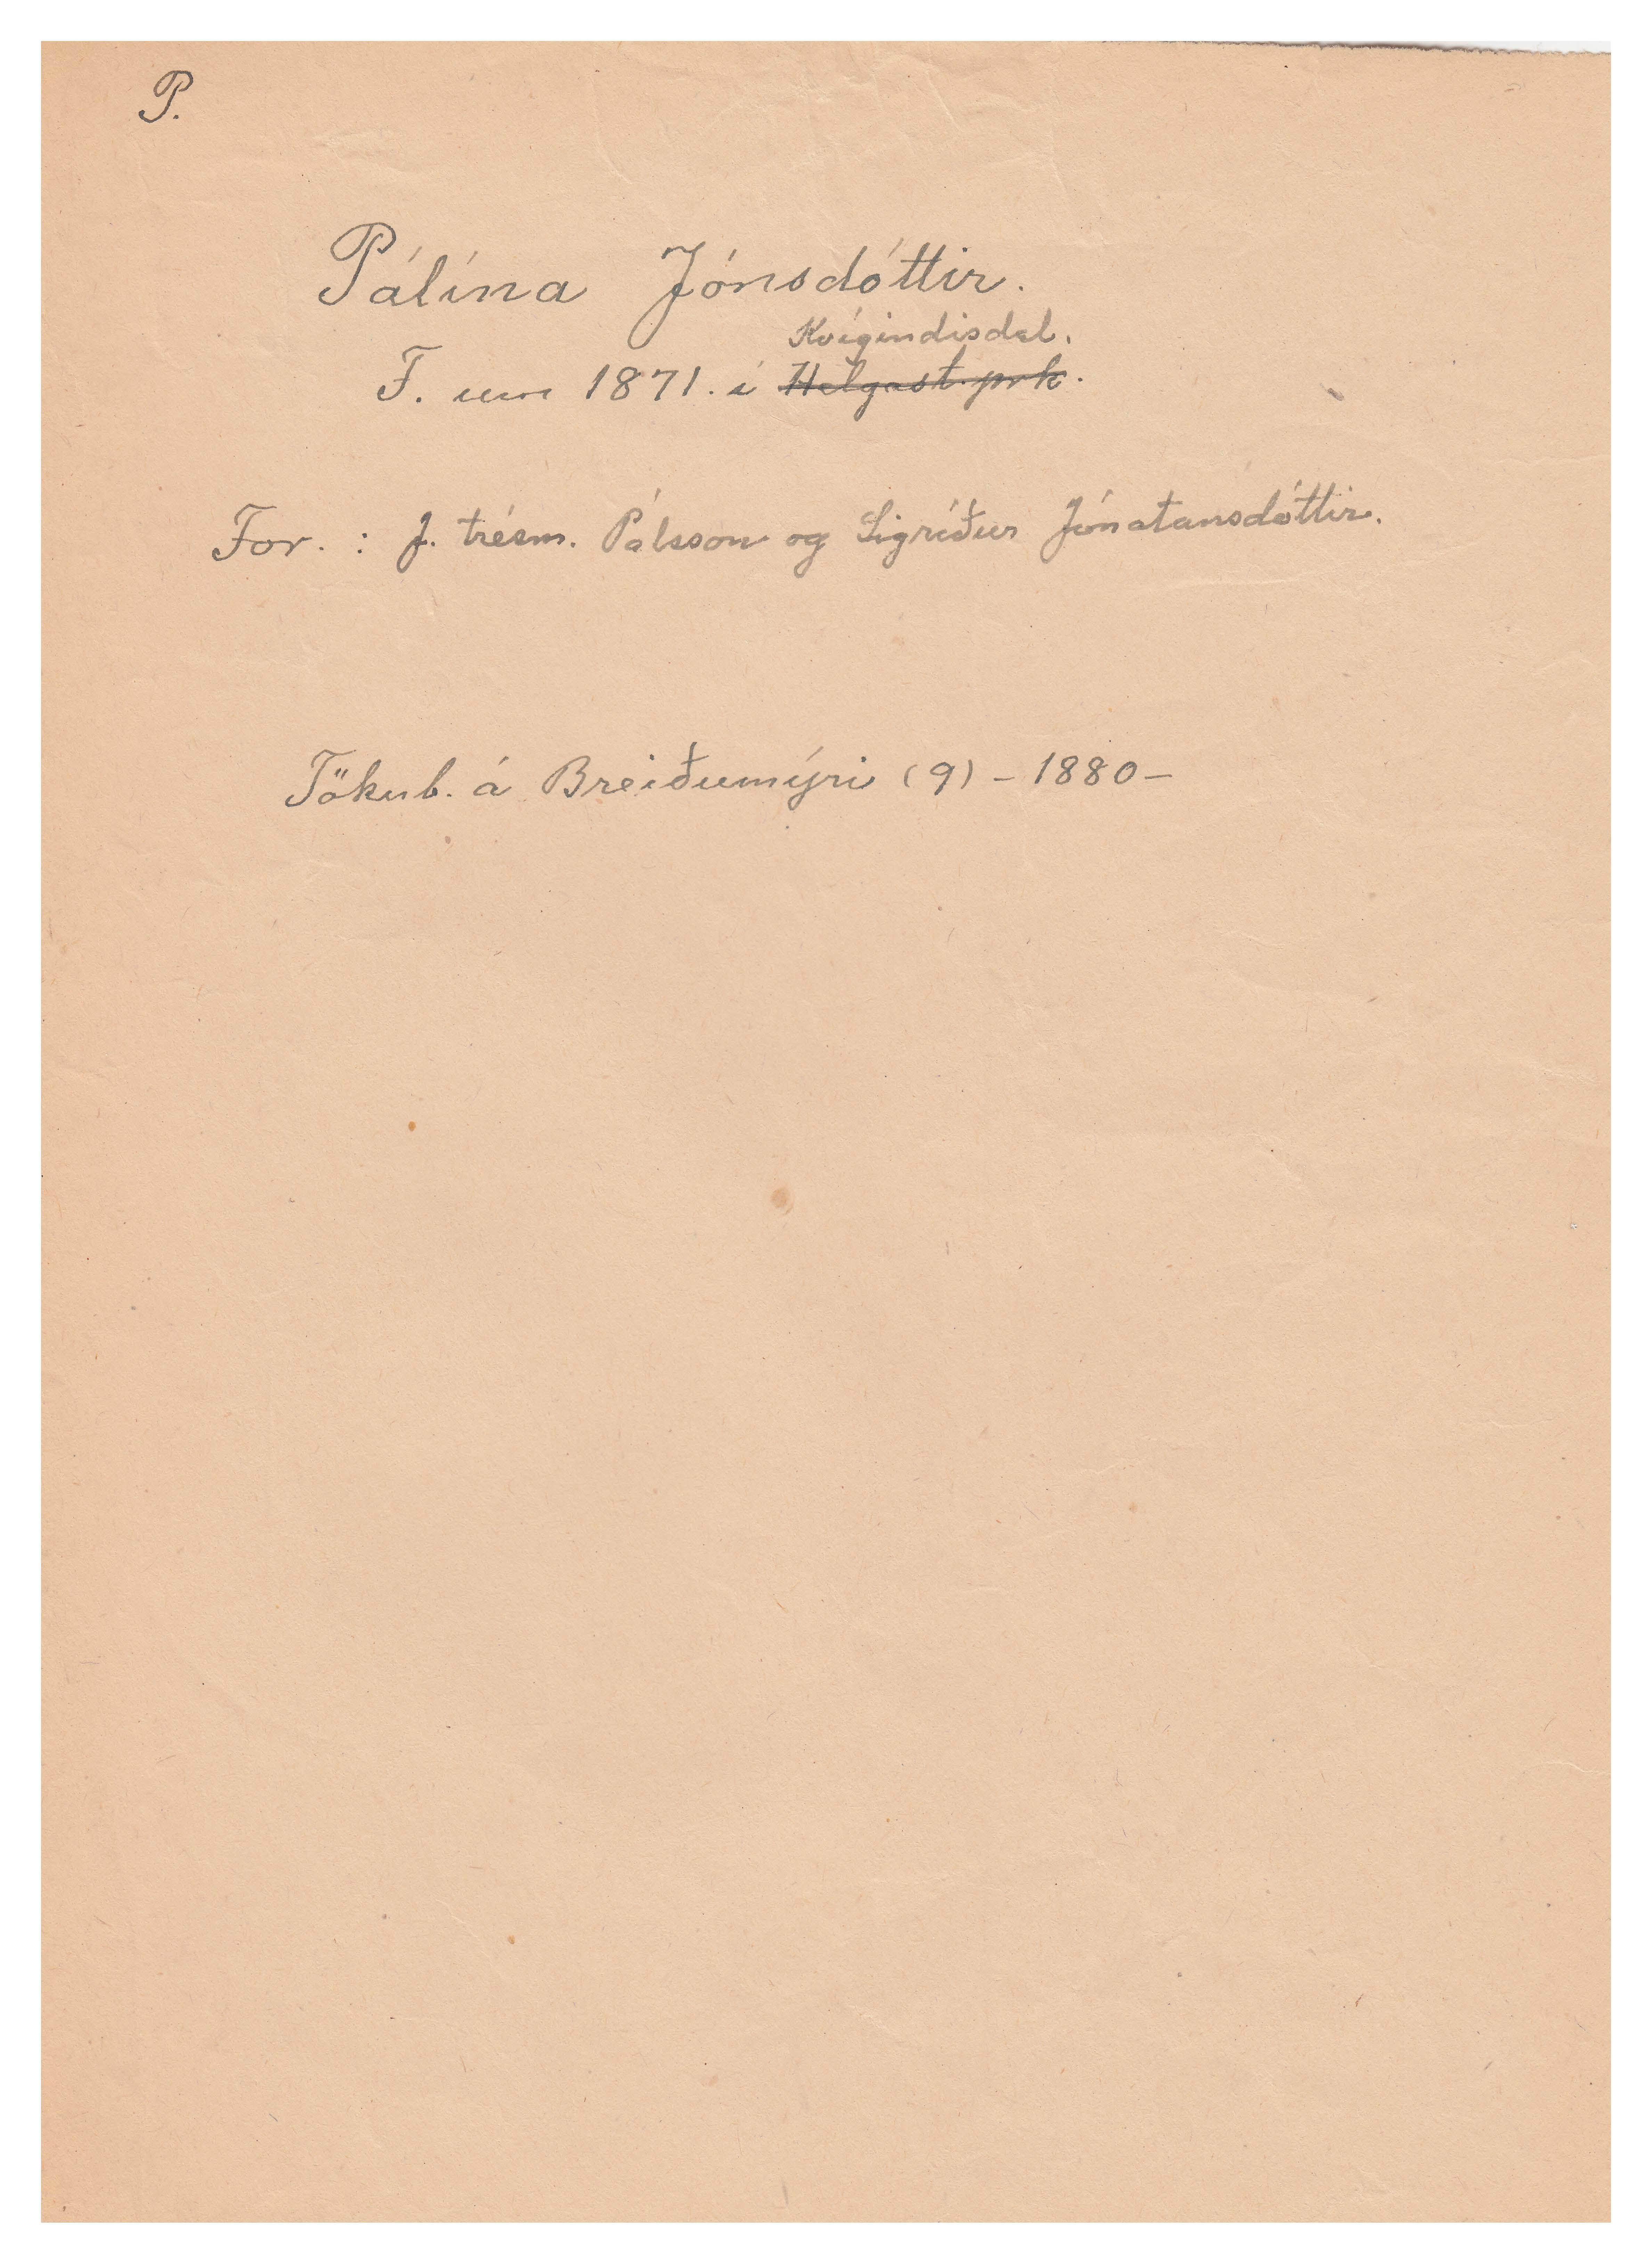 P.
Pálína Jónsdóttir.
Kvígindisdal.
F. um 1871. í Helgast. prk.
For. : J. trésm. Pálsson og Sigríður Jónatansdóttir.
Tökub. á Breiðumýri (9) - 1880 -